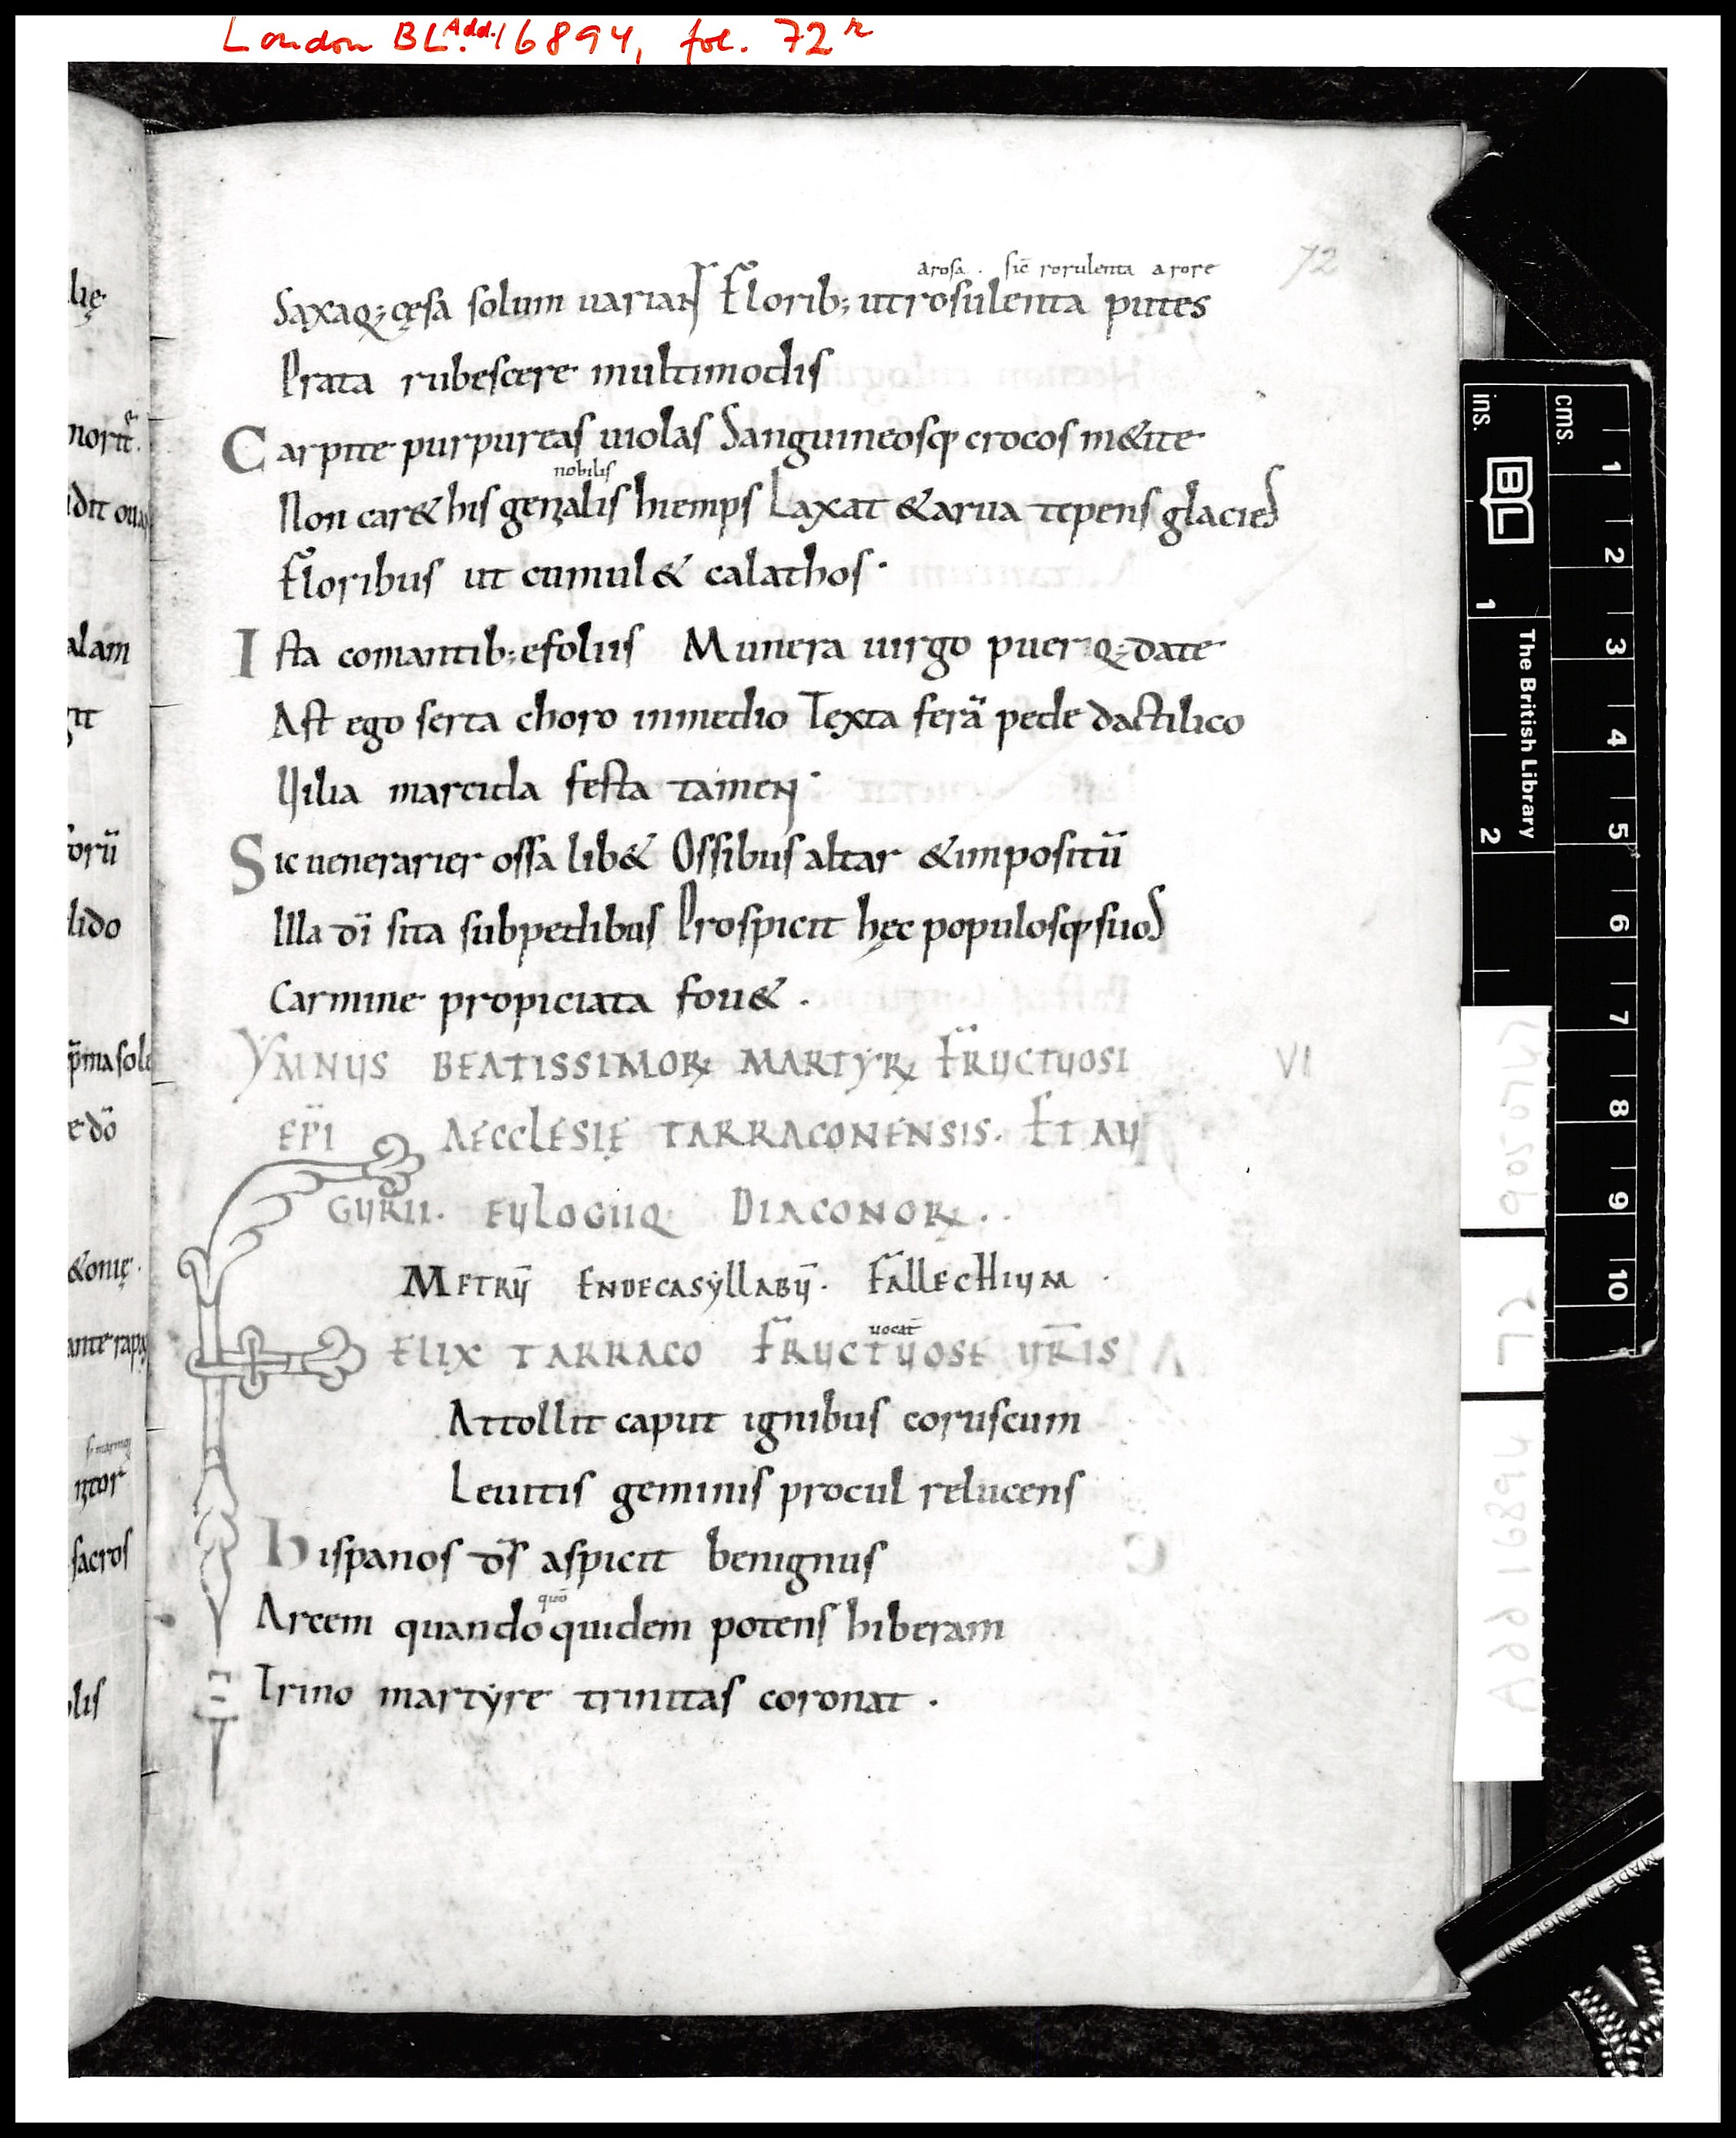 London BL Add. 16894, fol. 72r
72
arosa . sic̄ rorulenta a rore
Saxaq; cęsa solum uariaNT Florib; ut rosulenta putes
Prata rubescere multimodis
Carpite purpureas uiolas Sanguineosq; crocos m&ite
nobilis
Non car& his genialis hiemps Laxat & arua tepens glacies
Floribus ut cumul& calathos .
Ista comantib; e foliis Munera uirgo pueriq; date
Ast ego serta choro in medio Texta ferā pede dactilico
Uilia marcida festa tamen .
Sic uenerarier ossa lib& Ossibus altar & impositū
Illa dī sita sub pedibus Prospicit hęc populosq; suos
Carmine propiciata fou& .
YMNUS BEATISSIMORꝝ MARTYRꝝ FRUCTUOSI VI
EP̄I AECCLESIĘ TARRACONENSIS. ET AU
GURII. EULOGIIQ; DIACONORꝝ . .
METRŪ ENDECASYLLABŪ . FALLECHIUM .
uocat̄
FELIX TARRACO FRUCTUOSE UR̄IS
Attollit caput ignibus coruscum
Leuitis geminis procul relucens
Hispanos d̄s aspicit benignus
quō
Arcem quandoquidem potens hiberam
Trino martyre trinitas coronat .
lię
norit̄.
alam
git
orū
lido
e dō
&onię .
sacros
lis
ins.
cms.
1
2
3
4
5
6
7
8
9
10
1
2
BL
The British Library
MADE IN ENGLAND
Add 16894
72